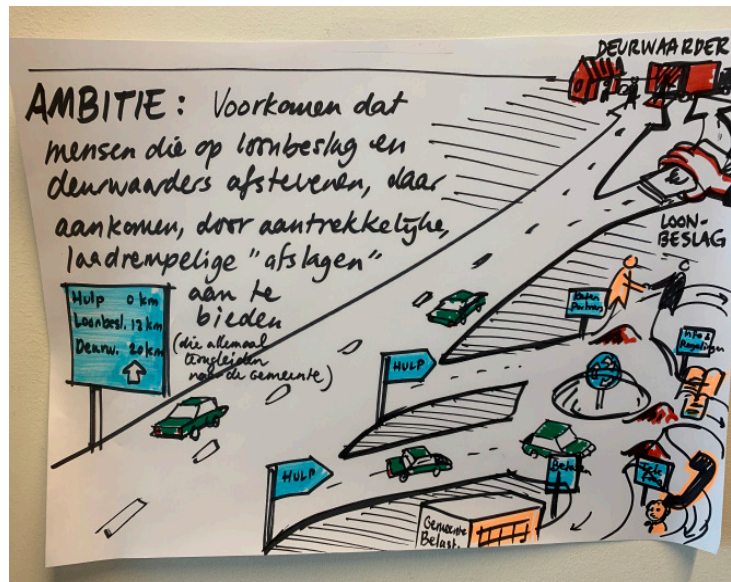 DEURWAARDER
AMBITIE: Voorkomen dat
mensen die op loonbeslag en
deurwaarders afstevenen, daar
aankomen, door aantrekkelijke,
laadrempelige "afslagen"
aan te
bieden
(die allemaal
terugleiden
naar de Gemeente)
LOON-
BESLAG
€
Hulp 0 km
Loonbesl. 12 km
Deurw. 20 km
HULP
Info &
Regelingen
HULP
Tele
foon
Gemeente
Belast.